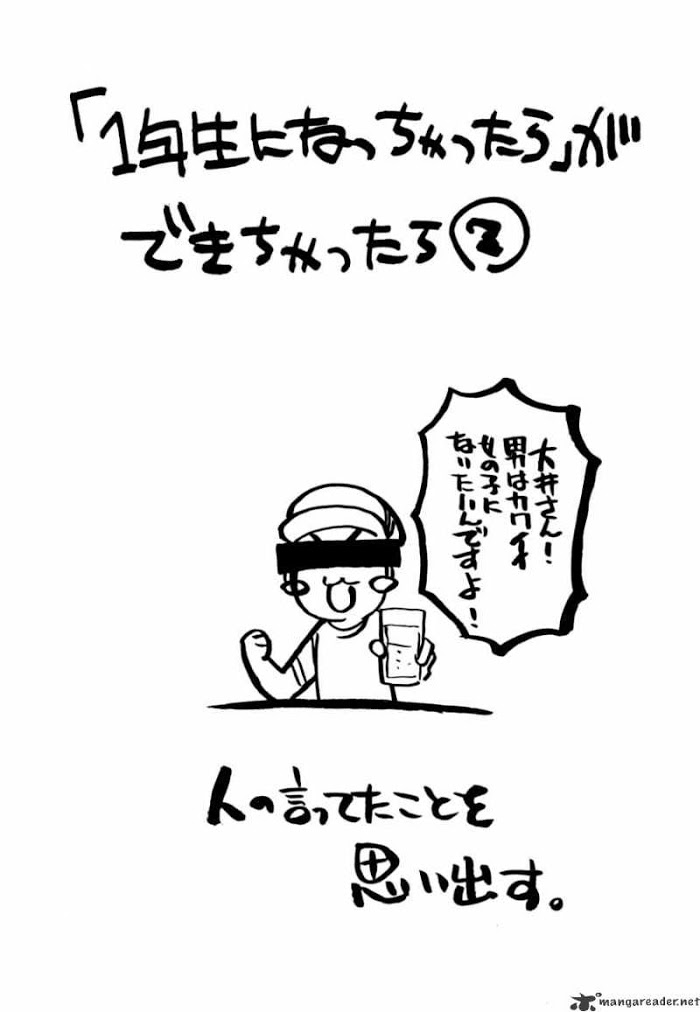 「1年生になっちゃったら」が
できちゃったら②
大井さん!
男はカワイイ
女の子に
なりたいんですよ!
人の言ってたことを
思い出す。
mangareader.net